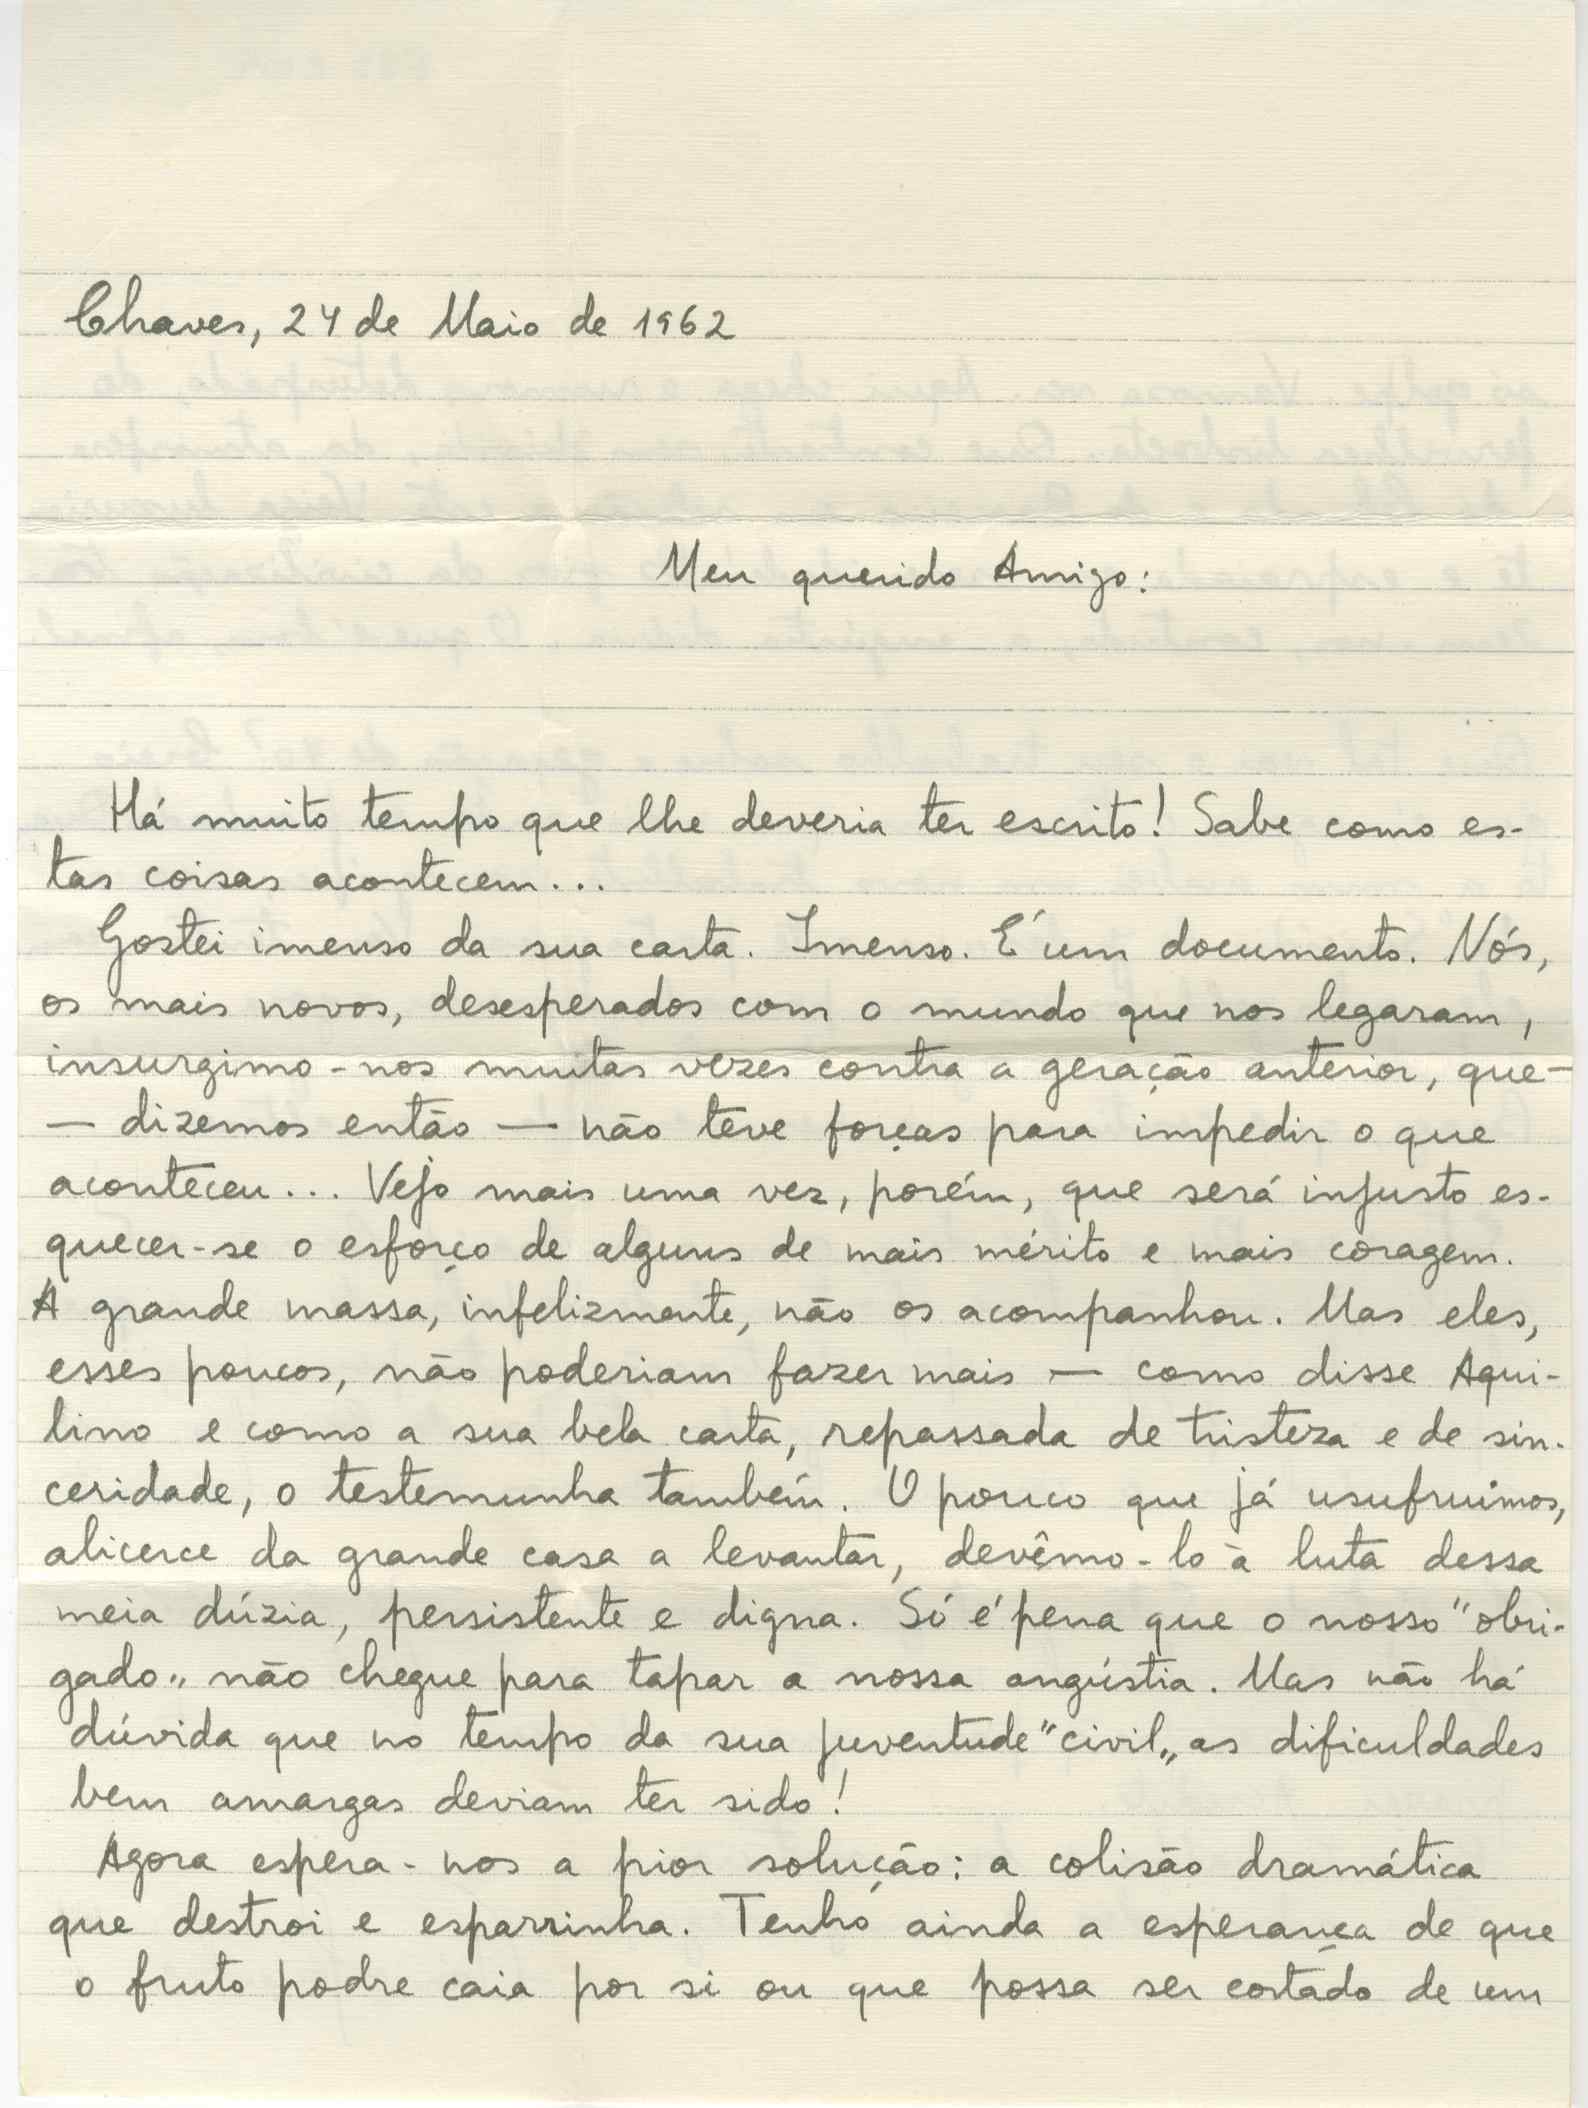 Chaves, 24 de Maio de 1962
Meu querido Amigo:
Há muito tempo que lhe deveria ter escrito! Sabe como es-
tas coisas acontecem...
Gostei imenso da sua carta. Imenso. É um documento. Nós,
os mais novos, desesperados com o mundo que nos legaram,
insurgimo-nos muitas vezes contra a geração anterior, que —
— dizemos então — não teve forças para impedir o que
aconteceu... Vejo mais uma vez, porém, que será injusto es-
quecer-se o esforço de alguns de mais mérito e mais coragem.
A grande massa, infelizmente, não os acompanhou. Mas eles,
esses poucos, não poderiam fazer mais — como disse Aqui-
lino e como a sua bela carta, repassada de tristeza e de sin-
ceridade, o testemunha também. O pouco que já usufruimos,
alicerce da grande casa a levantar, devêmo-lo à luta dessa
meia dúzia, persistente e digna. Só é pena que o nosso "obri-
gado" não chegue para tapar a nossa angústia. Mas não há
dúvida que no tempo da sua juventude "civil" as dificuldades
bem amargas deviam ter sido!
Agora espera-nos a pior solução: a colisão dramática
que destroi e esparrinha. Tenho ainda a esperança de que
o fruto podre caia por si ou que possa ser cortado de um